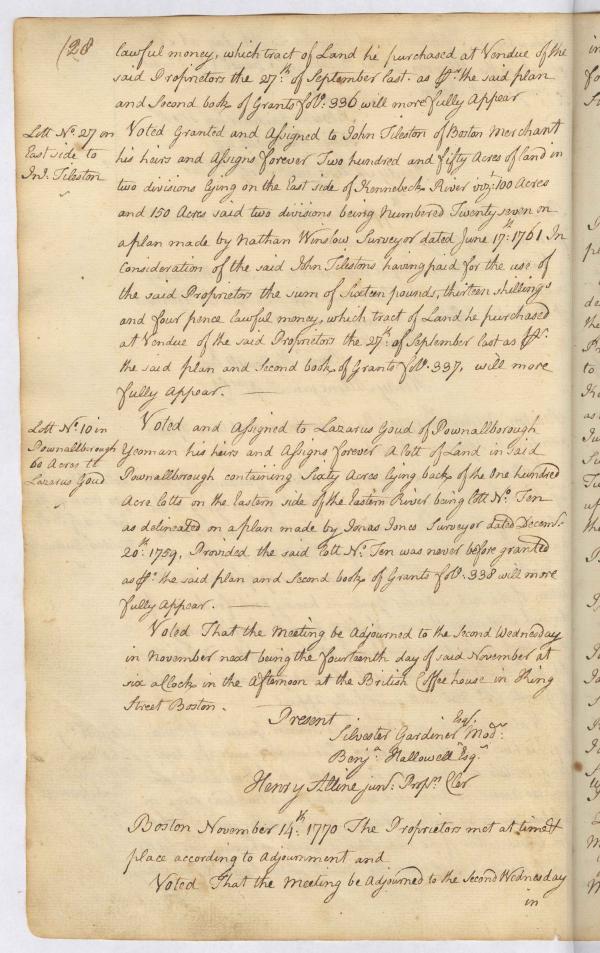 128
lawful money, which tract of Land he purchased at Vendue of the
said Proprietors the 27th: of September last. as Pr. the said plan
and Second book of Grants fol: 336 will more fully Appear
Lott No. 27 on
East side to
Jno. Tileston
Voted Granted and Assigned to John Tileston of Boston Merchant
his heirs and Assigns forever Two hundred and fifty Acres of land in
two divisions lying on the East side of Kennebeck River viz: 100 Acres
and 150 Acres said two divisions being Numbered Twenty seven on
a plan made by Nathan Winslow Surveyor dated June 17th: 1761 In
Consideration of the said John Tilestons having paid for the use of
the said Proprietors the sum of Sixteen pounds, thirteen shillings
and four pence lawful money, which tract of Land he purchased
at Vendue of the said Proprietors the 27th: of September last as Pr.
the said plan and Second book of Grants fol: 337, will more
fully Appear. —
Lott No. 10 in
Pownallborough
60 Acres to
Lazarus Goud
Voted and Assigned to Lazarus Goud of Pownallborough
Yeoman his heirs and Assigns forever A lott of Land in said
Pownallborough containing Sixty Acres lying back of the One hundred
Acre lotts on the Eastern side of the Eastern River being lott No. Ten
as delineated on a plan made by Jonas Jones Surveyor dated Decemr.
20th: 1759, Provided the said lott No. Ten was never before granted
as Pr. the said plan and Second book of Grants fol: 338 will more
fully Appear. —
Voted That the Meeting be Adjourned to the Second Wednesday
in November next being the fourteenth day of said November at
six a Clock in the Afternoon at the British Coffee house in King
Street Boston. —
Present
Silvester Gardiner Esqr. Modr.
Benja. Hallowell Esqr.
Henry Alline junr. Propr. Cler
Boston November 14th: 1770 The Proprietors met at time &
place according to Adjournment and
Voted That the Meeting be Adjourned to the Second Wednesday
in